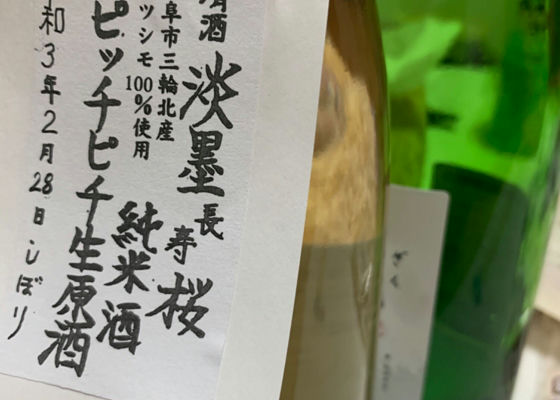 清酒
淡墨
長寿桜
阜市三輪北産
ツシモ100%使用
純米酒
ピッチピチ生原酒
和3年2月28日しぼり